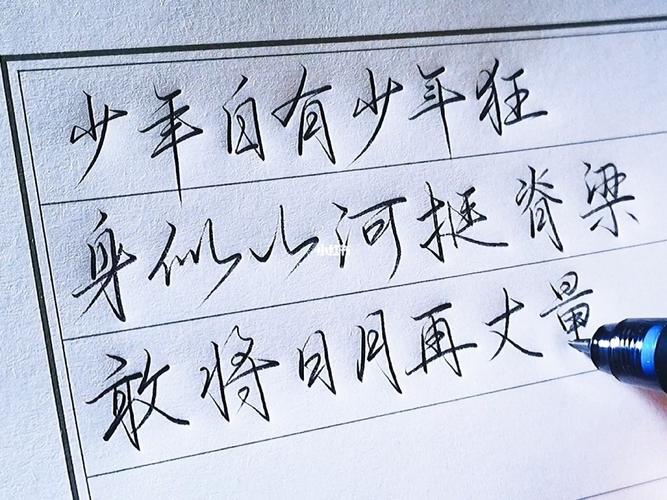 少年自有少年狂
身似山河挺脊梁
敢将日月再丈量
小红书